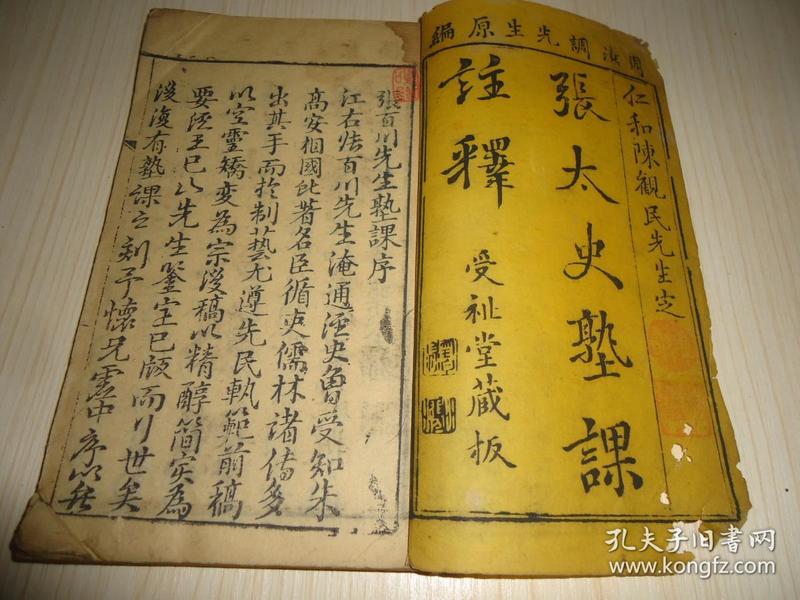 調先生原編
仁和陳觀民先生定
張太史塾課
註釋
受祉堂藏板
張百川先生塾課序
江右張百川先生淹通經史魯受知朱
高安相國此著名臣循吏儒林諸傳多
出其手而於制藝尤遵先民軌範前稿
以空靈矯變為宗後稿以精醇簡實為
要經王巳
先生鑒定已版而行世矣
後復有塾課之刻予懷兄虛中序以
孔夫子旧书网
www.kongfz.com